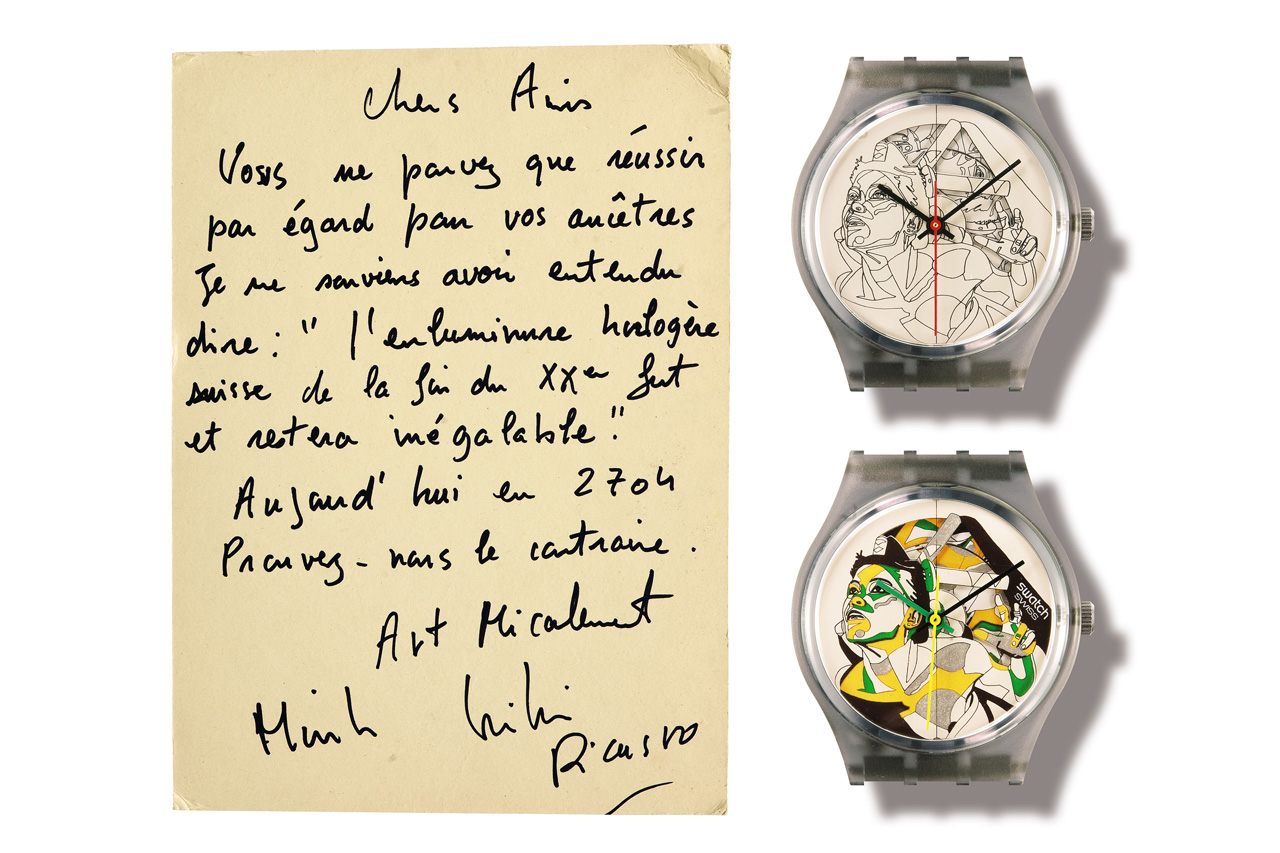 Chers Amis
Vous ne pouvez que réussir
par égard pour vos ancêtres
Je me souviens avoir entendu
dire : " l'enluminure horlogère
suisse de la fin du XXem fut
et restera inégalable "
Aujourd'hui en 2704
Prouvez-nous le contraire .
Art Micalement
Kiki
Picasso
swatch
SWISS